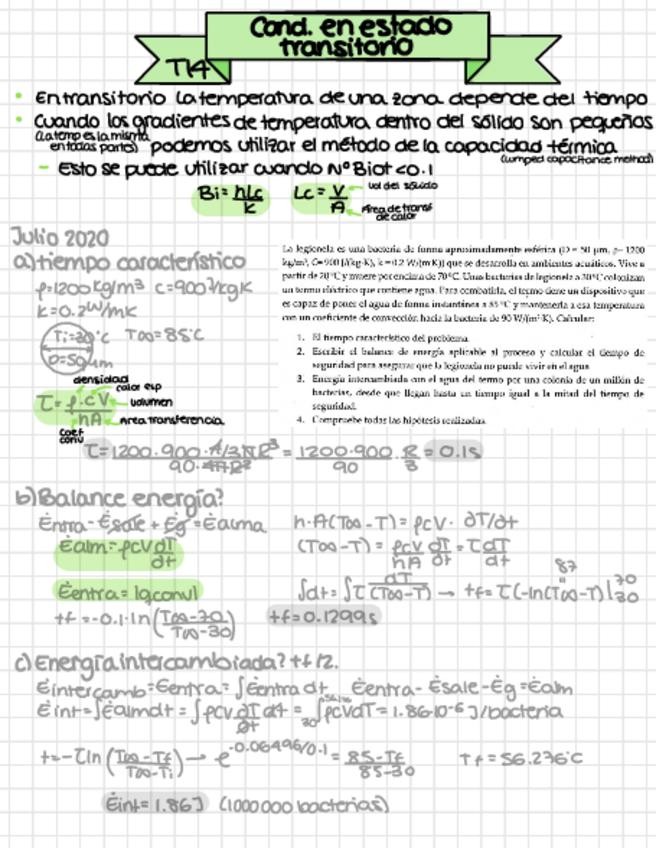 Cond. en estado
transitorio
T14
• En transitorio la temperatura de una zona depende del tiempo
• Cuando los gradientes de temperatura dentro del sólido son pequeños
(la temp es la misma
en todas partes) podemos utilizar el método de la capacidad térmica
(lumped capacitance method)
- Esto se puede utilizar cuando Nº Biot <0.1
Bi = hLc/K Lc = V/A
vol del sólido
Área de transf
de calor
Julio 2020
a) tiempo característico
ρ=1200 kg/m³ c=900 J/kgK
k=0.2 W/mK
Ti=30°C T∞=85°C
D=50μm
densidad
calor esp
τ = ρ.c.V/hA
volumen
Área transferencia
Coef
conv
τ = 1200.900.4/3πR³/90.4πR² = 1200.900/90 . R/3 = 0.1s
La legionela es una bacteria de forma aproximadamente esférica (D = 50 μm, ρ= 1200
kg/m³, C=900 J/(kg·K), k =0.2 W/(m·K)) que se desarrolla en ambientes acuáticos. Vive a
partir de 20 °C y muere por encima de 70°C. Unas bacterias de legionela a 30°C colonizan
un termo eléctrico que contiene agua. Para combatirla, el termo tiene un dispositivo que
es capaz de poner el agua de forma instantánea a 85 °C y mantenerla a esa temperatura
con un coeficiente de convección hacia la bacteria de 90 W/(m²·K). Calcular:
1. El tiempo característico del problema.
2. Escribir el balance de energía aplicable al proceso y calcular el tiempo de
seguridad para asegurar que la legionela no puede vivir en el agua
3. Energía intercambiada con el agua del termo por una colonia de un millón de
bacterias, desde que llegan hasta un tiempo igual a la mitad del tiempo de
seguridad.
4. Compruebe todas las hipótesis realizadas.
b) Balance energía?
Ėntra - Ėsale + Ėg = Ėalma h.A(T∞-T) = ρcV. ∂T/∂t
Ėalm = ρcV dT/dt (T∞-T) = ρcV/hA dT/dt = τ dT/dt
Ėentra = 1q conv1 ∫dt = ∫τ dT/(T∞-T) → tf = τ(-ln(T∞-T)|
tf = -0.1.ln(T∞-70/T∞-30) tf=0.1299s
c) Energía intercambiada? tf/2.
Ėintercamb = Ėentra = ∫Ėentra dt Ėentra - Ėsale - Ėg = Ėalm
Ėint = ∫Ėalm dt = ∫ρcV ∂T/∂t dt = ∫ρcVdT = 1.86·10⁻⁶ J/bacteria
t = -τ ln(T∞-Tf/T∞-Ti) → e^-0.06496/0.1 = 85-Tf/85-30 Tf = 56.276°C
Ėint = 1.86J (1000000 bacterias)